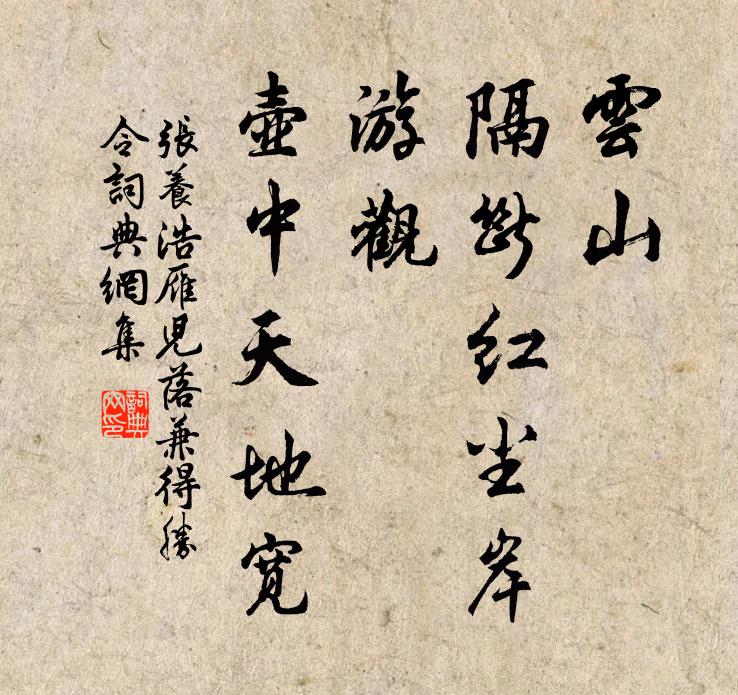 雲山
隔斷紅尘岸
游觀
壺中天地寬
張養浩雁兒落兼得勝
令詞典網集
詞典
网印